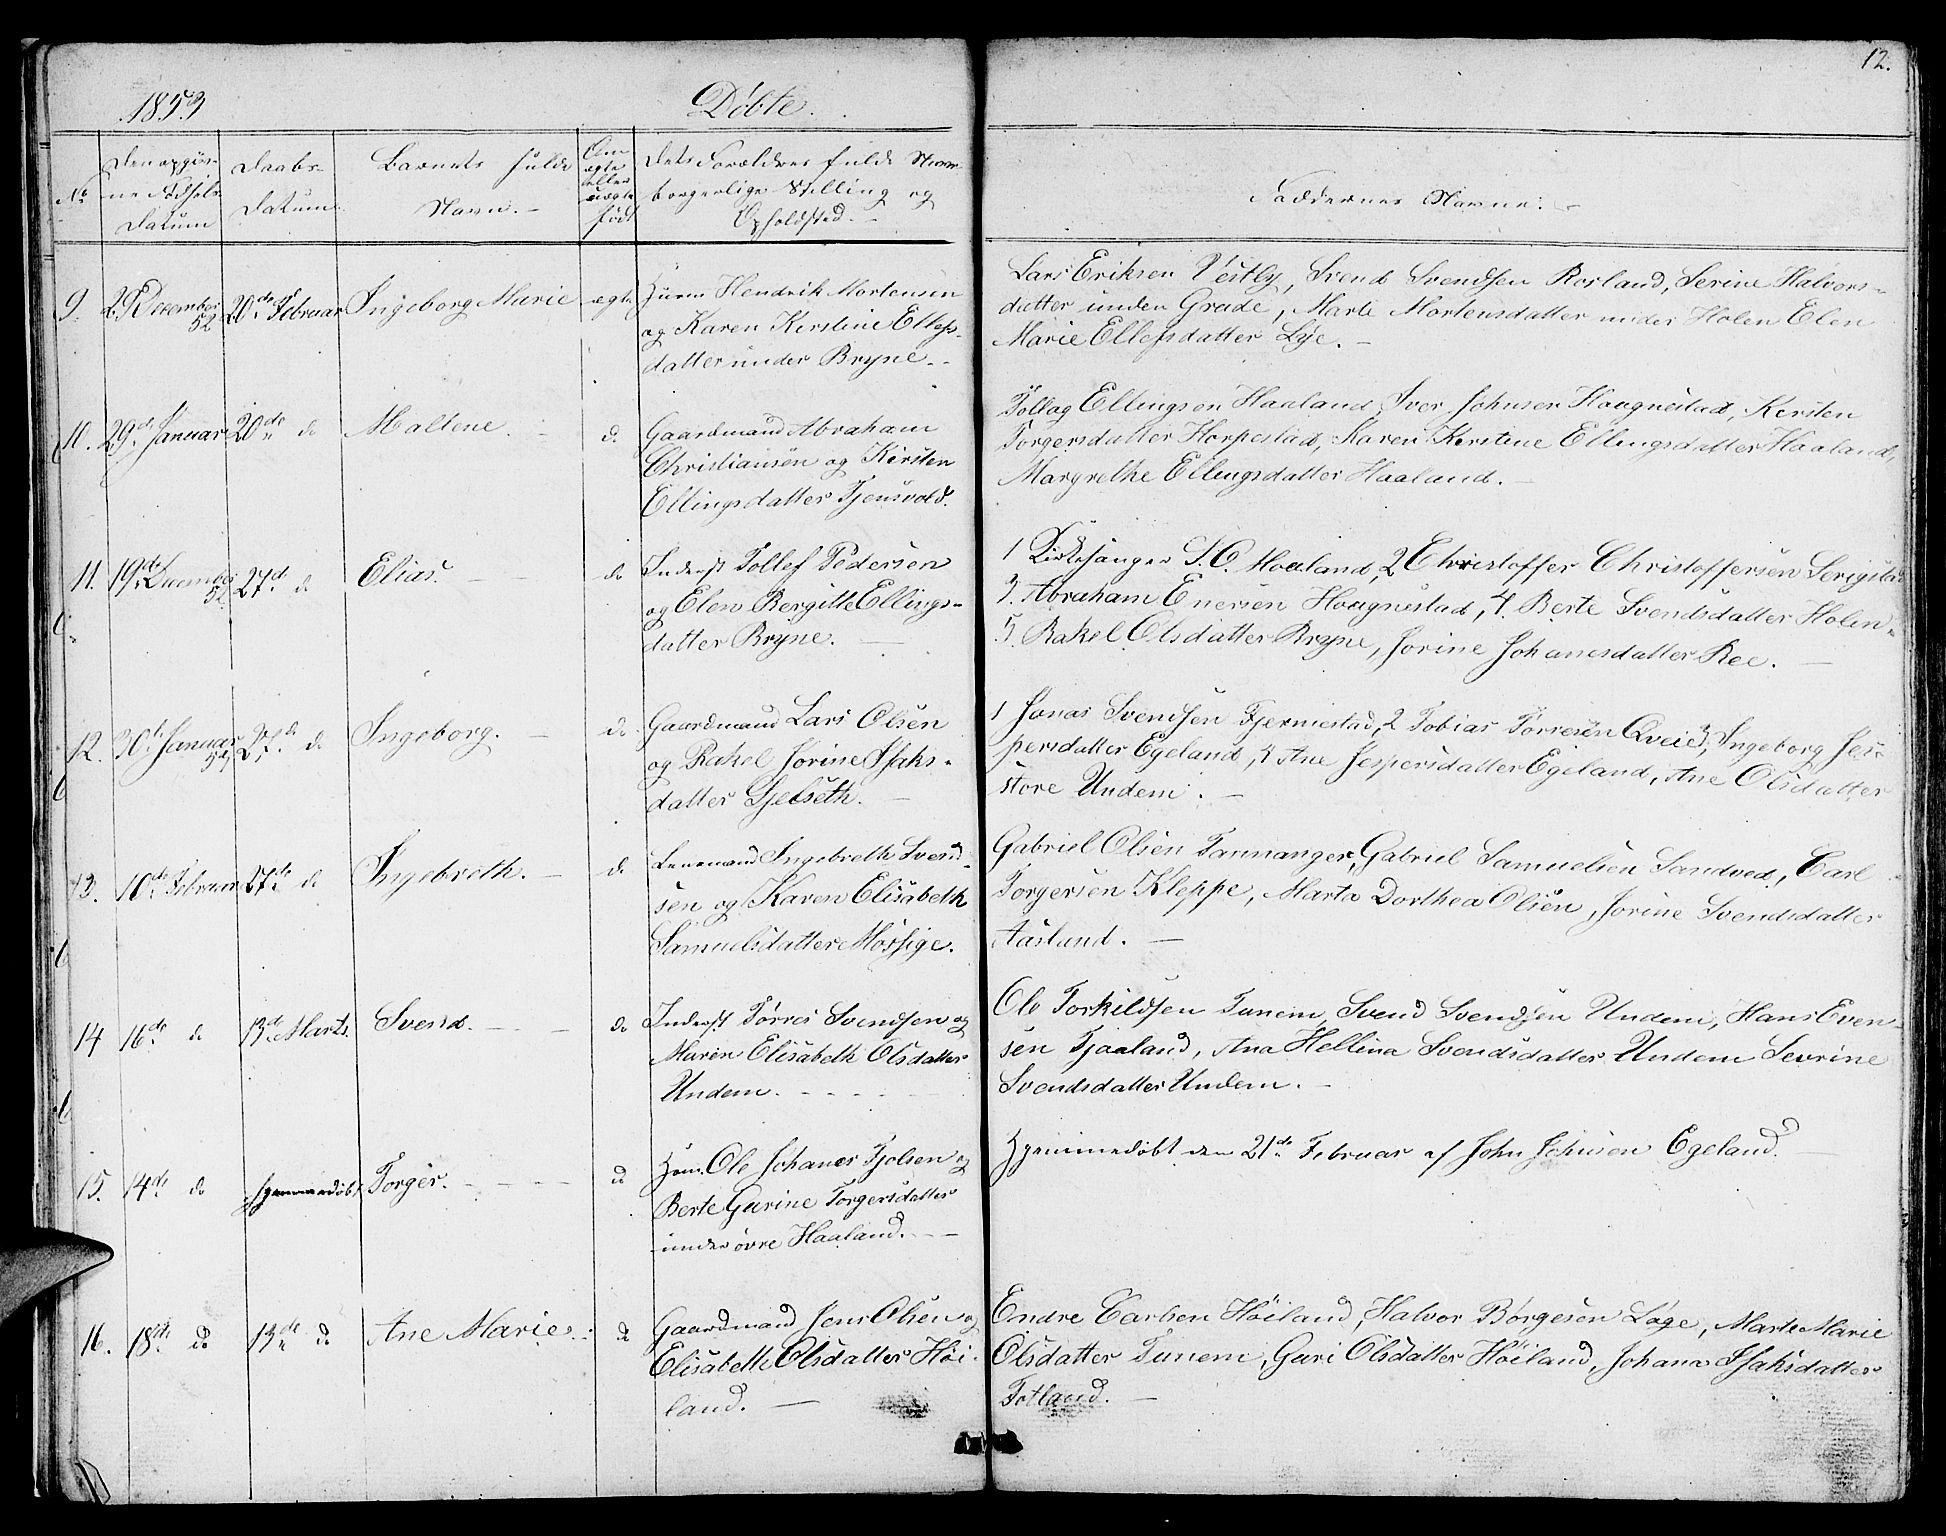 12.
1853
Döbte.
No
Den opgiv-
ne Födsels
Datum
Daabs-
Datum
Barnets fulde
Navn. -
Om
ægte
eller
uægte
født
Dets Forældres fulde Navn
borgerlige Stilling og
Opholdsted. -
Faddernes Navne. -
9. 29 December 52 20de Februar Ingeborg Marie ægte
Huusm Hendrik Mortensen
og Karen Kirstine Ellefs-
datter under Bryne. -
Lars Eriksen Vestly, Svend Svendsen Rosland, Serine Halvors-
datter under Grude, Marte Mortensdatter under Holen Elen
Marie Ellefsdatter Lye. -
10. 29de Januar 20de do Maltene. do
Gaardmand Abraham
Christiansen og Kirsten
Ellingsdatter Tjensvold.
Tollag Ellingsen Haaland, Iver Johnsen Haugnestad, Kersten
Torgersdatter Horpestad, Karen Kirstine Ellingsdatter Haaland,
Margrethe Ellingsdatter Haaland. -
11. 19de December 52 27de do Elias. do
Inderst Tollef Pedersen
og Elen Bergitte Ellings-
datter Bryne. -
1 Kirkesanger S. O. Haaland, 2 Christoffer Christoffersen Serigstad
3. Abraham Enersen Haugnestad, 4. Berte Svendsdatter Holen
5. Rakel Olsdatter Bryne, Jorine Johanesdatter Ree. -
12. 30te Januar 53 27de do Ingeborg. - do
Gaardmand Lars Olsen
og Rakel Jorine Isaks-
datter Gjelseth. -
1 Jonas Svendsen Tjermestad, 2 Tobias Torresen Qveie, 3 Ingeborg Jes-
persdatter Egeland, 4 Ane Jespersdatter Egeland, Ane Olsdatter
store Undem. -
13. 10de Februar 27de do Ingebreth. - do
Lensmand Ingebreth Svend-
sen og Karen Elisabeth
Samuelsdatter Mossige.
Gabriel Olsen Tannanger, Gabriel Samuelsen Sandved, Carl
Torgersen Kleppe, Marta Dorthea Olsen, Jorine Svendsdatter
Aasland. -
14 16de do 13de Marts. Svend. - do
Inderst Törres Svendsen og
Maren Elisabeth Olsdatter
Undem. -
Ole Torkildsen Tunem, Svend Svendsen Undem, Hans Even-
sen Tjaaland, Ana Hellina Svendsdatter Undem Sevrine
Svendsdatter Undem. -
15. 14de do hjemmedöbt Torger. - do
Huusm. Ole Johanes Tjolsen og
Berte Gurine Torgersdatter
under övre Haaland. -
Hjemmedöbt den 21de Februar af John Johnsen Egeland.
16. 18de do 13de do Ane Marie. do
Gaardmand Jens Olsen og
Elisabeth Olsdatter Höi-
land. -
Endre Carlsen Höiland, Halvor Börgesen Löge, Marte Marie
Olsdatter Tunem, Guri Olsdatter Höiland, Johana Isaksdatter
Totland. -